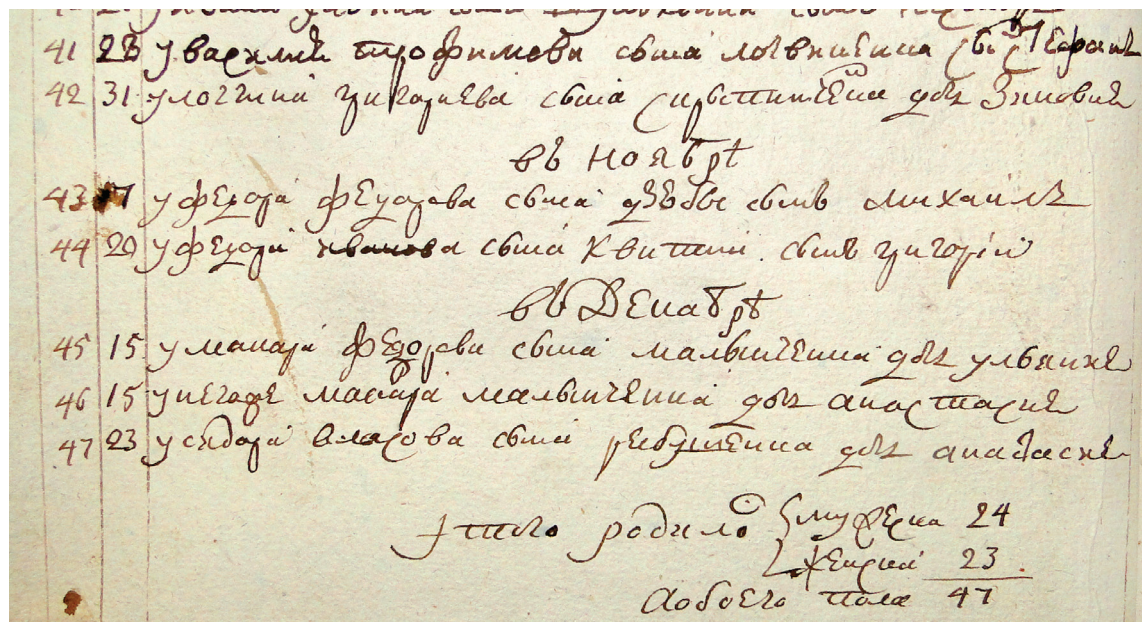 41 23 у василия трофимова сына логвиненка
42 31 у логгина григориева сына дочь Зиновия
въ ноябрѣ
43 17 у федора федорова сына дзюбы сынъ михаилъ
44 20 у федора иванова сына квитки сынъ григорій
въ Декабрѣ
45 15 у макара федорова сына малышенка дочь ульяния
46 15 у макара малышенка дочь анастасия
47 23 у сидора власова сына дочь анастасия
итого родило мужеска 24
женска 23
обоего пола 47